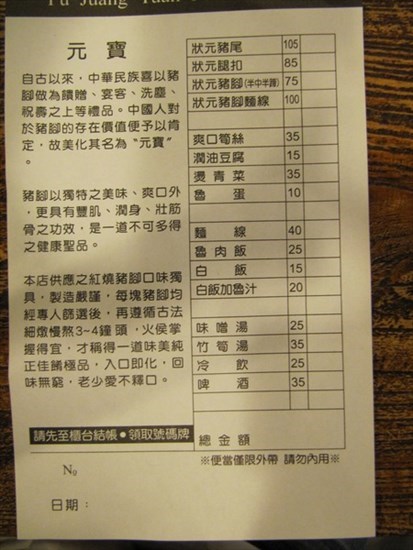 Fu Juang Yuan
元寶
自古以來，中華民族喜以豬
腳做為饋贈、宴客、洗塵、
祝壽之上等禮品。中國人對
於豬腳的存在價值便予以肯
定，故美化其名為“元寶”
。
豬腳以獨特之美味、爽口外
，更具有豐肌、潤身、壯筋
骨之功效，是一道不可多得
之健康聖品。
本店供應之紅燒豬腳口味獨
具，製造嚴謹，每塊豬腳均
經專人篩選後，再遵循古法
細燉慢熬3~4鐘頭，火侯掌
握得宜，才稱得一道味美純
正佳餚極品，入口即化，回
味無窮，老少愛不釋口。
請先至櫃台結帳●領取號碼牌
No
日期：
狀元豬尾 105
狀元腿扣 85
狀元豬腳(半中半蹄) 75
狀元豬腳麵線 100
爽口筍絲 35
潤油豆腐 15
燙青菜 35
魯蛋 10
麵線 40
魯肉飯 25
白飯 15
白飯加魯汁 20
味噌湯 25
竹筍湯 35
冷飲 25
啤酒 35
總金額
※便當僅限外帶 請勿內用※